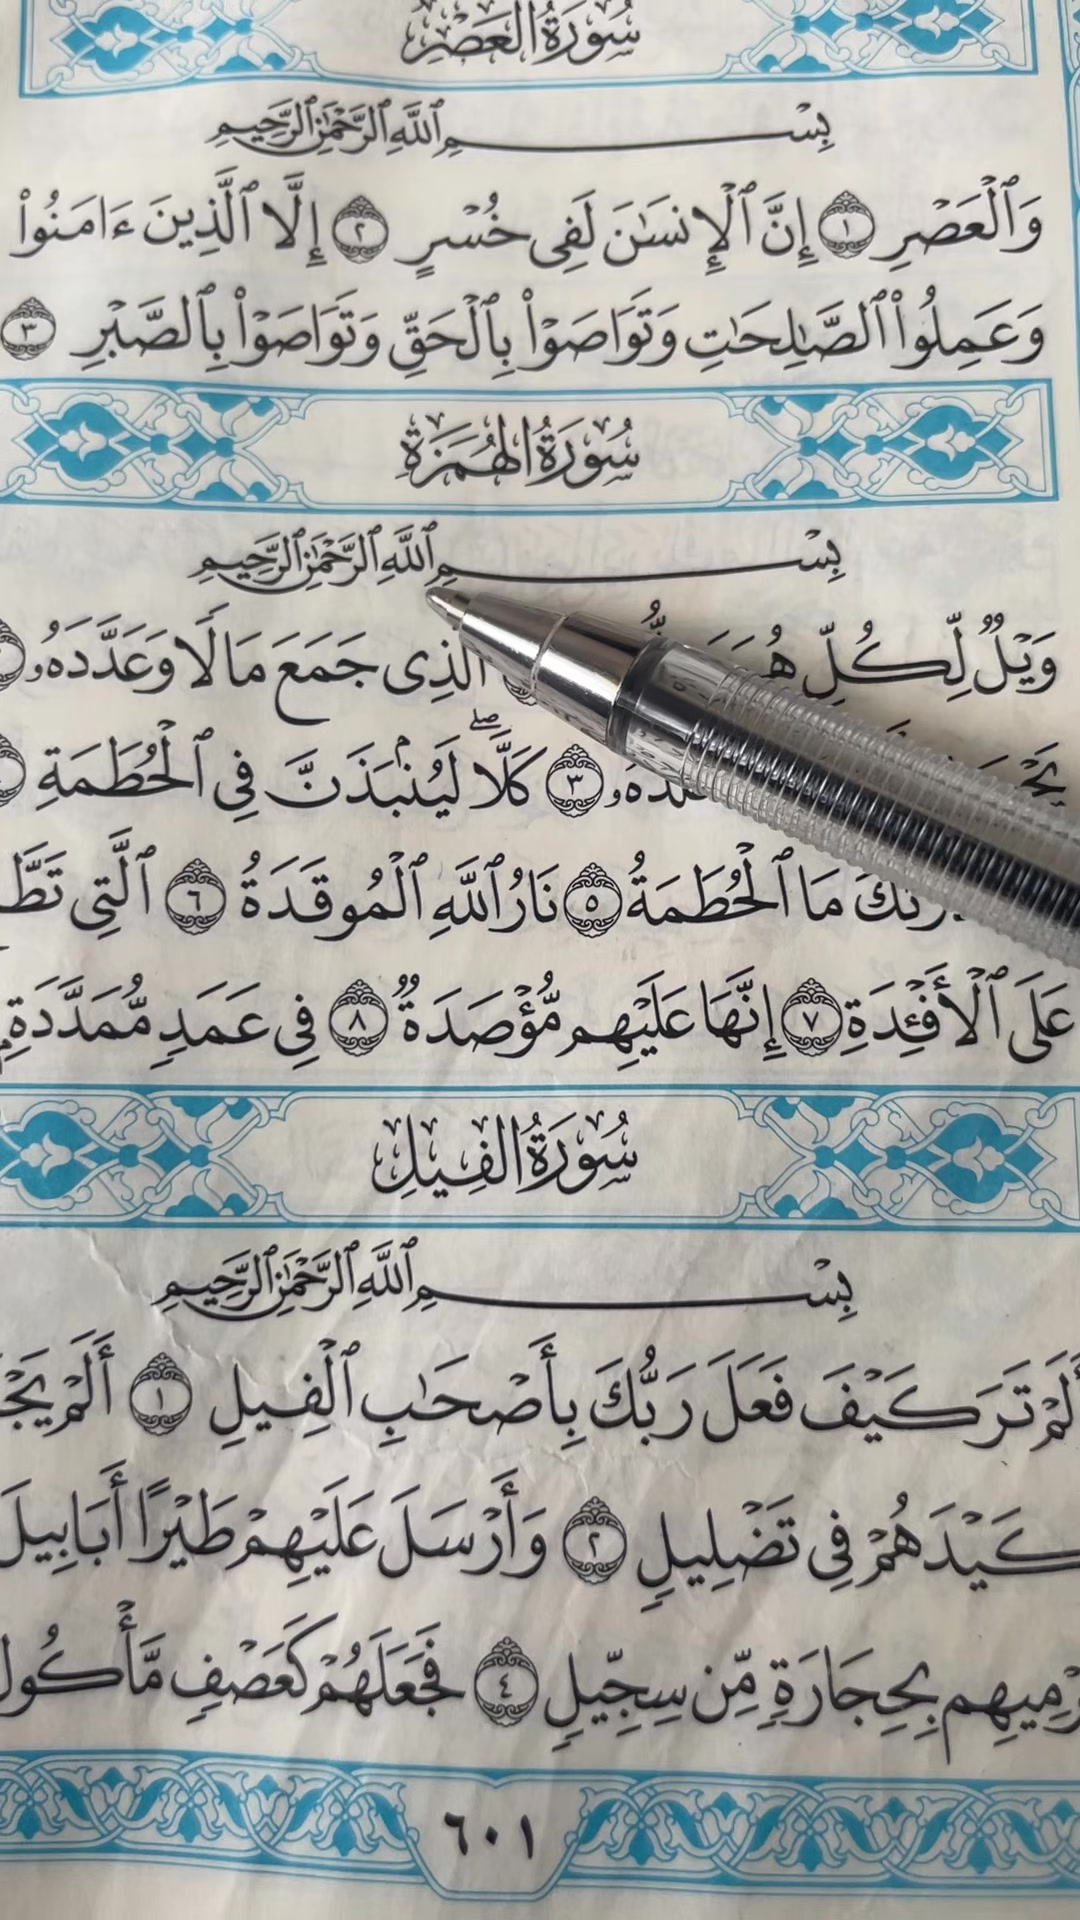 سُورَةُ العَصْرِ
بِسْمِ ٱللَّهِ ٱلرَّحْمَٰنِ ٱلرَّحِيمِ
وَٱلْعَصْرِ ١ إِنَّ ٱلْإِنسَٰنَ لَفِى خُسْرٍ ٢ إِلَّا ٱلَّذِينَ ءَامَنُوا۟
وَعَمِلُوا۟ ٱلصَّٰلِحَٰتِ وَتَوَاصَوْا۟ بِٱلْحَقِّ وَتَوَاصَوْا۟ بِٱلصَّبْرِ ٣
سُورَةُ الهُمَزَةِ
بِسْمِ ٱللَّهِ ٱلرَّحْمَٰنِ ٱلرَّحِيمِ
وَيْلٌ لِّكُلِّ ٱلَّذِى جَمَعَ مَالًا وَعَدَّدَهُۥ
٣ كَلَّا ۖ لَيُنۢبَذَنَّ فِى ٱلْحُطَمَةِ
مَا ٱلْحُطَمَةُ ٥ نَارُ ٱللَّهِ ٱلْمُوقَدَةُ ٦ ٱلَّتِى
عَلَى ٱلْأَفْـِٔدَةِ ٧ إِنَّهَا عَلَيْهِم مُّؤْصَدَةٌ ٨ فِى عَمَدٍ مُّمَدَّدَةٍۭ
سُورَةُ الفِيلِ
بِسْمِ ٱللَّهِ ٱلرَّحْمَٰنِ ٱلرَّحِيمِ
أَلَمْ تَرَ كَيْفَ فَعَلَ رَبُّكَ بِأَصْحَٰبِ ٱلْفِيلِ ١ أَلَمْ
كَيْدَهُمْ فِى تَضْلِيلٍ ٢ وَأَرْسَلَ عَلَيْهِمْ طَيْرًا أَبَابِيلَ
بِحِجَارَةٍ مِّن سِجِّيلٍ ٤ فَجَعَلَهُمْ كَعَصْفٍ مَّأْكُولٍ
٦٠١